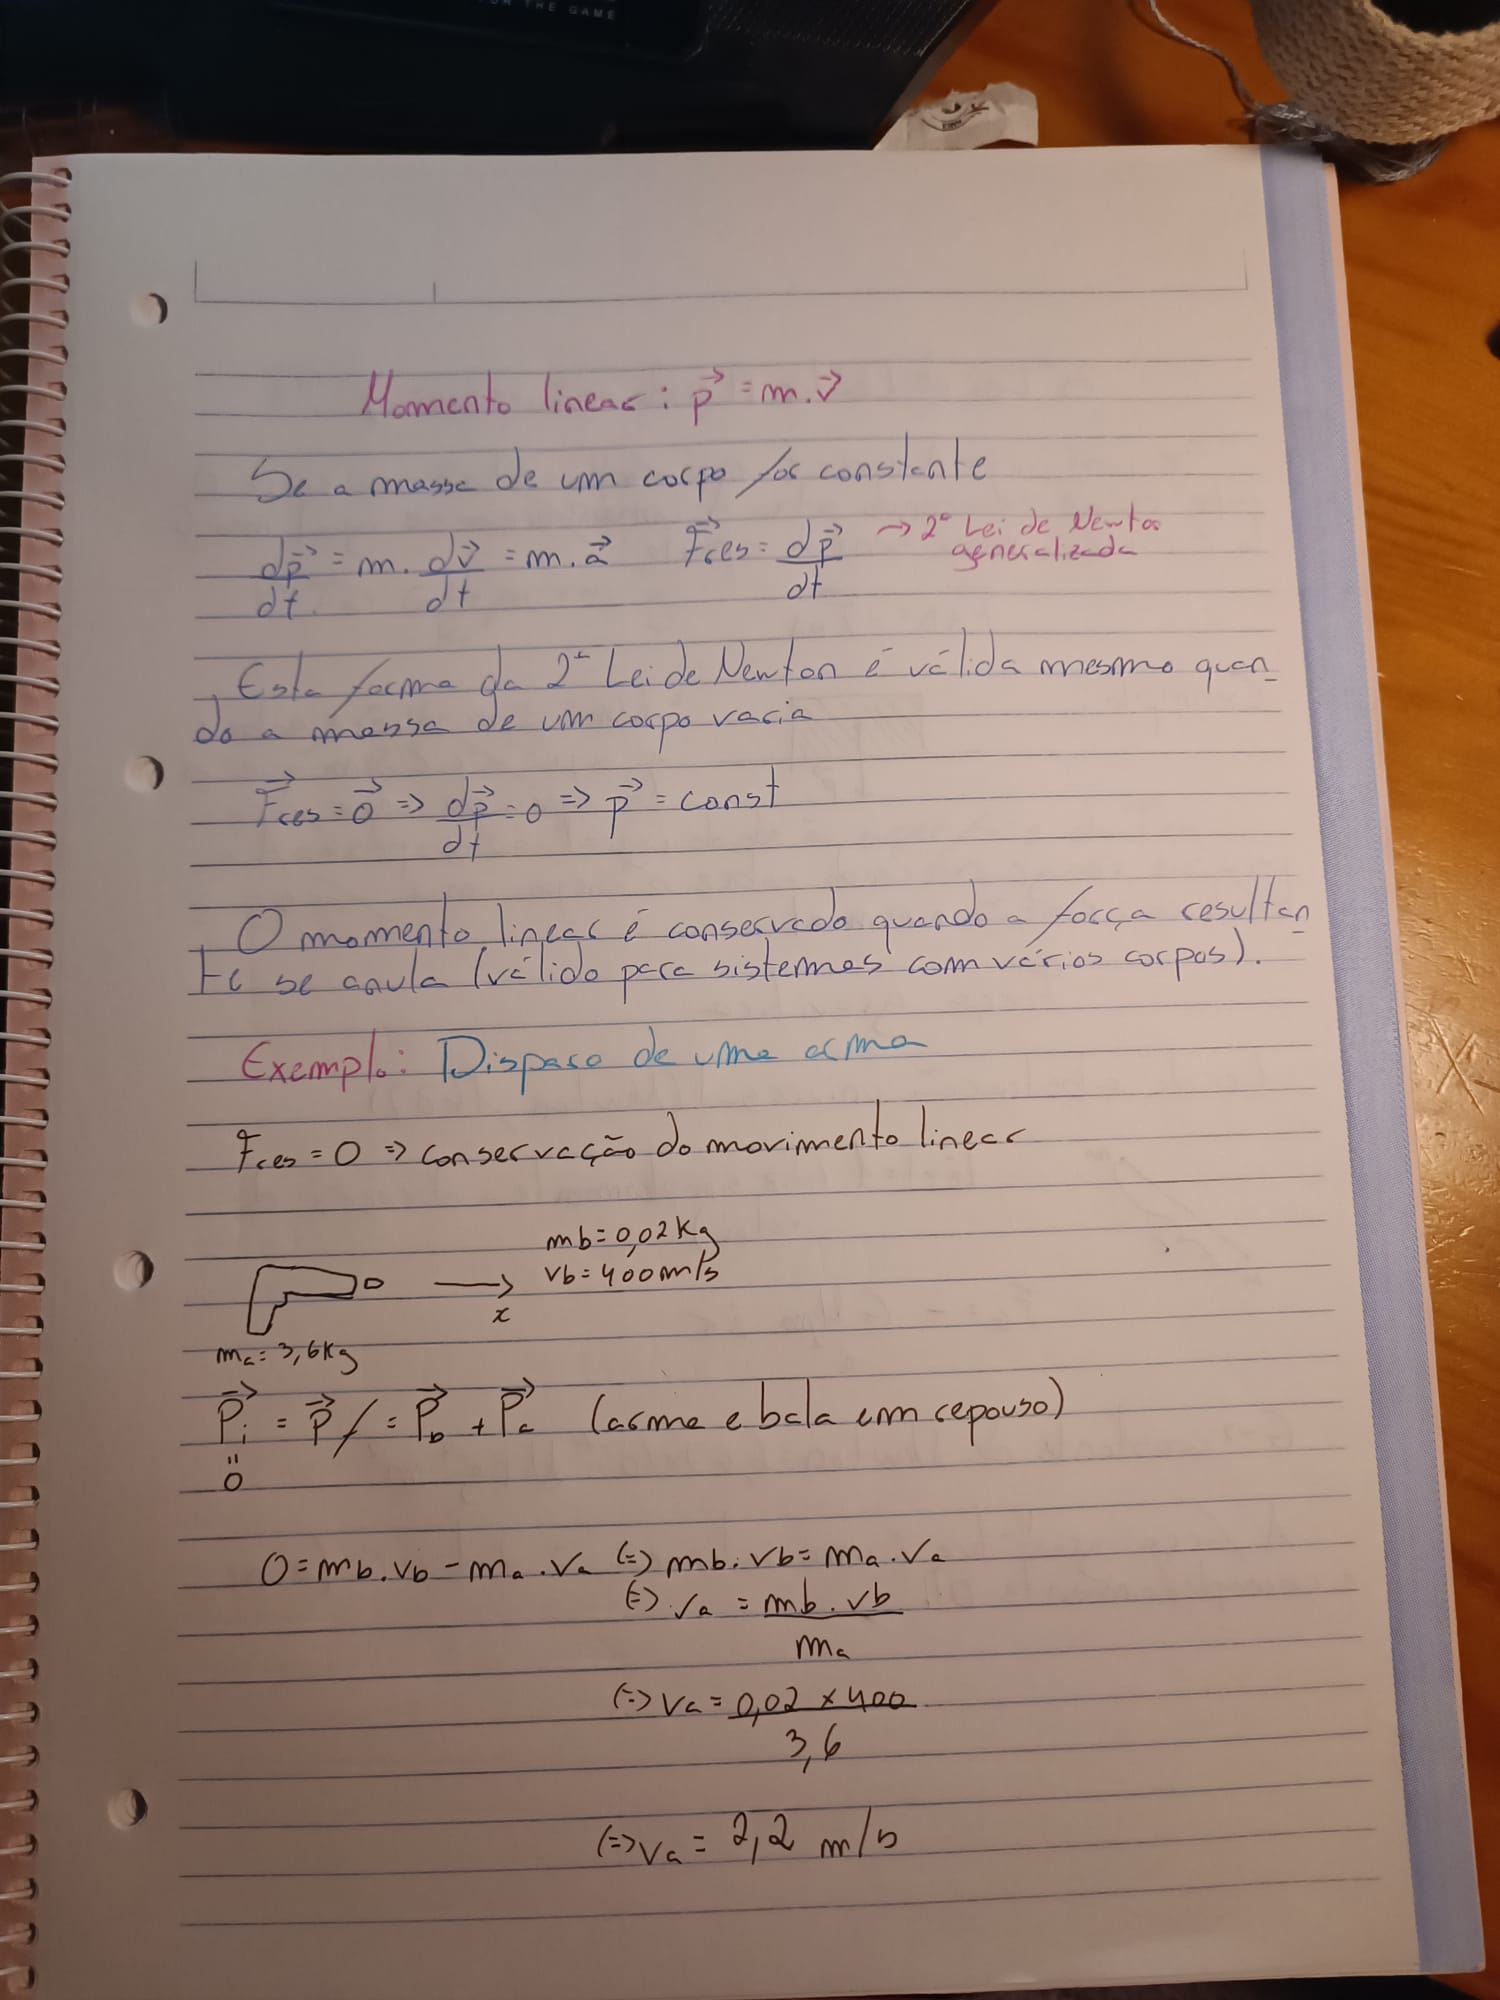 FOR THE GAME
Momento linear: p⃗ = m.v⃗
Se a massa de um corpo for constante
dp⃗/dt = m. dv⃗/dt = m.a⃗   F⃗res = dp⃗/dt → 2ª Lei de Newton
generalizada
Esta forma da 2ª Lei de Newton é válida mesmo quan-
do a massa de um corpo varia
F⃗res = 0⃗ => dp⃗/dt = 0 => p⃗ = const
O momento linear é conservado quando a força resultan-
te se anula (válido para sistemas com vários corpos).
Exemplo: Disparo de uma arma
Fres = 0 => conservação do movimento linear
mb = 0,02 kg
vb = 400 m/s
x
ma = 3,6 kg
P⃗i = P⃗f = P⃗b + P⃗a (arma e bala em repouso)
"
0
0 = mb.vb - ma.va (=) mb.vb = ma.va
(=) va = mb.vb/ma
(=) va = 0,02 x 400/3,6
(=) va = 2,2 m/s